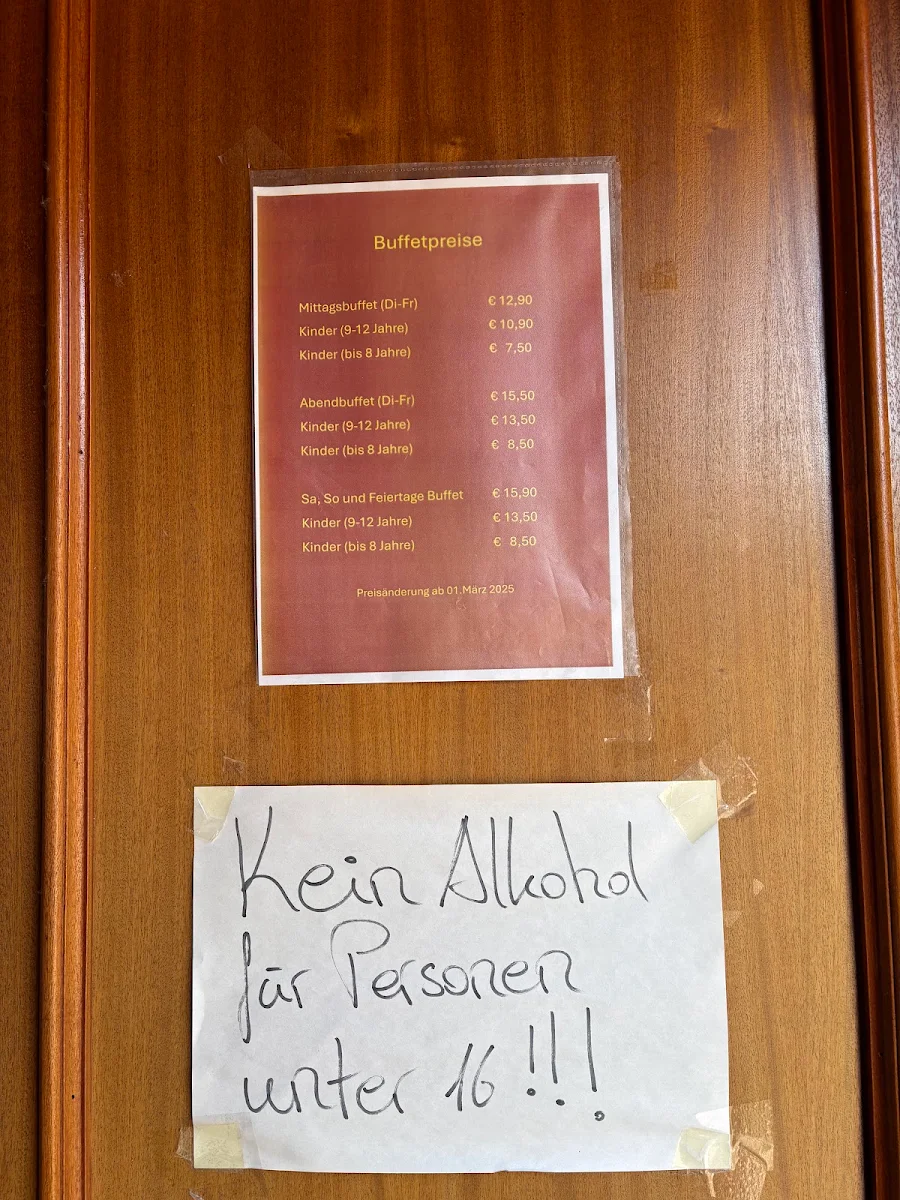 Buffetpreise
Mittagsbuffet (Di-Fr) € 12,90
Kinder (9-12 Jahre) € 10,90
Kinder (bis 8 Jahre) € 7,50
Abendbuffet (Di-Fr) € 15,50
Kinder (9-12 Jahre) € 13,50
Kinder (bis 8 Jahre) € 8,50
Sa, So und Feiertage Buffet € 15,90
Kinder (9-12 Jahre) € 13,50
Kinder (bis 8 Jahre) € 8,50
Preisänderung ab 01.März 2025
Kein Alkohol
für Personen
unter 16!!!